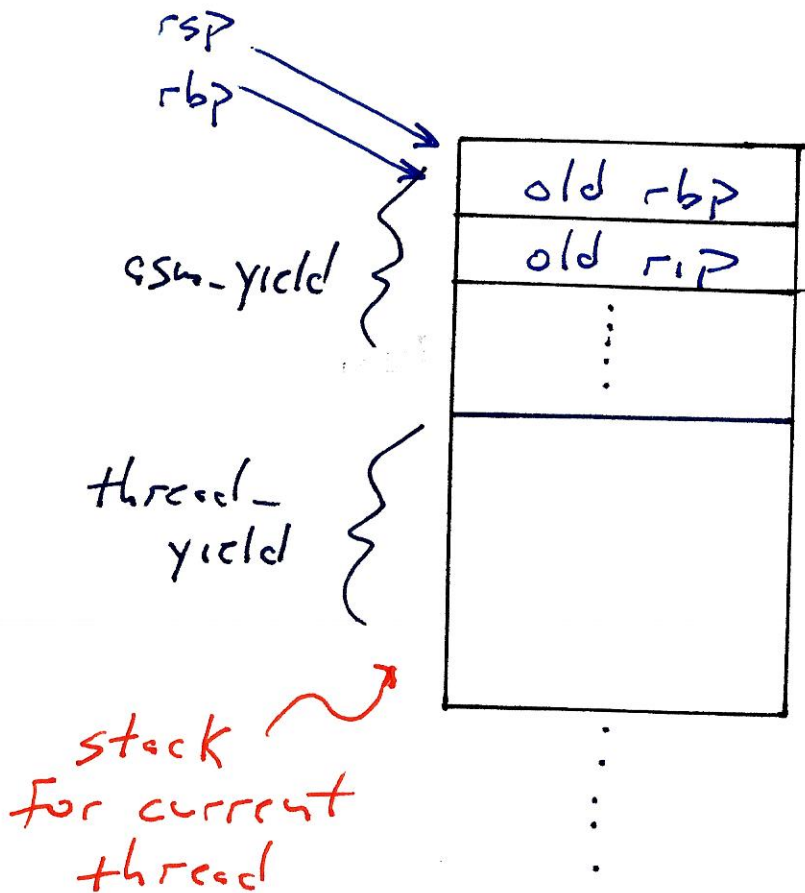 rsp
rbp
old rbp
old rip
asm_yield
thread_
yield
stack
for current
thread